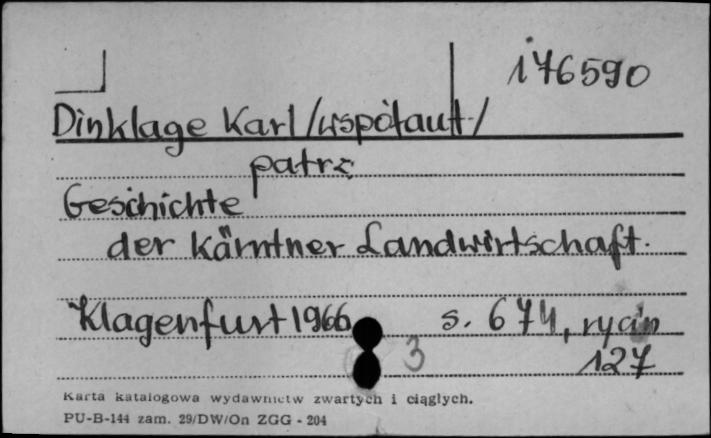 176590
Dinklage Karl /współaut./
patrz
Geschichte
der Kärntner Landwirtschaft.
Klagenfurt 1966 s. 674, rycin
3 127
Karta katalogowa wydawnictw zwartych i ciągłych.
PU-B-144 zam. 29/DW/On ZGG - 204